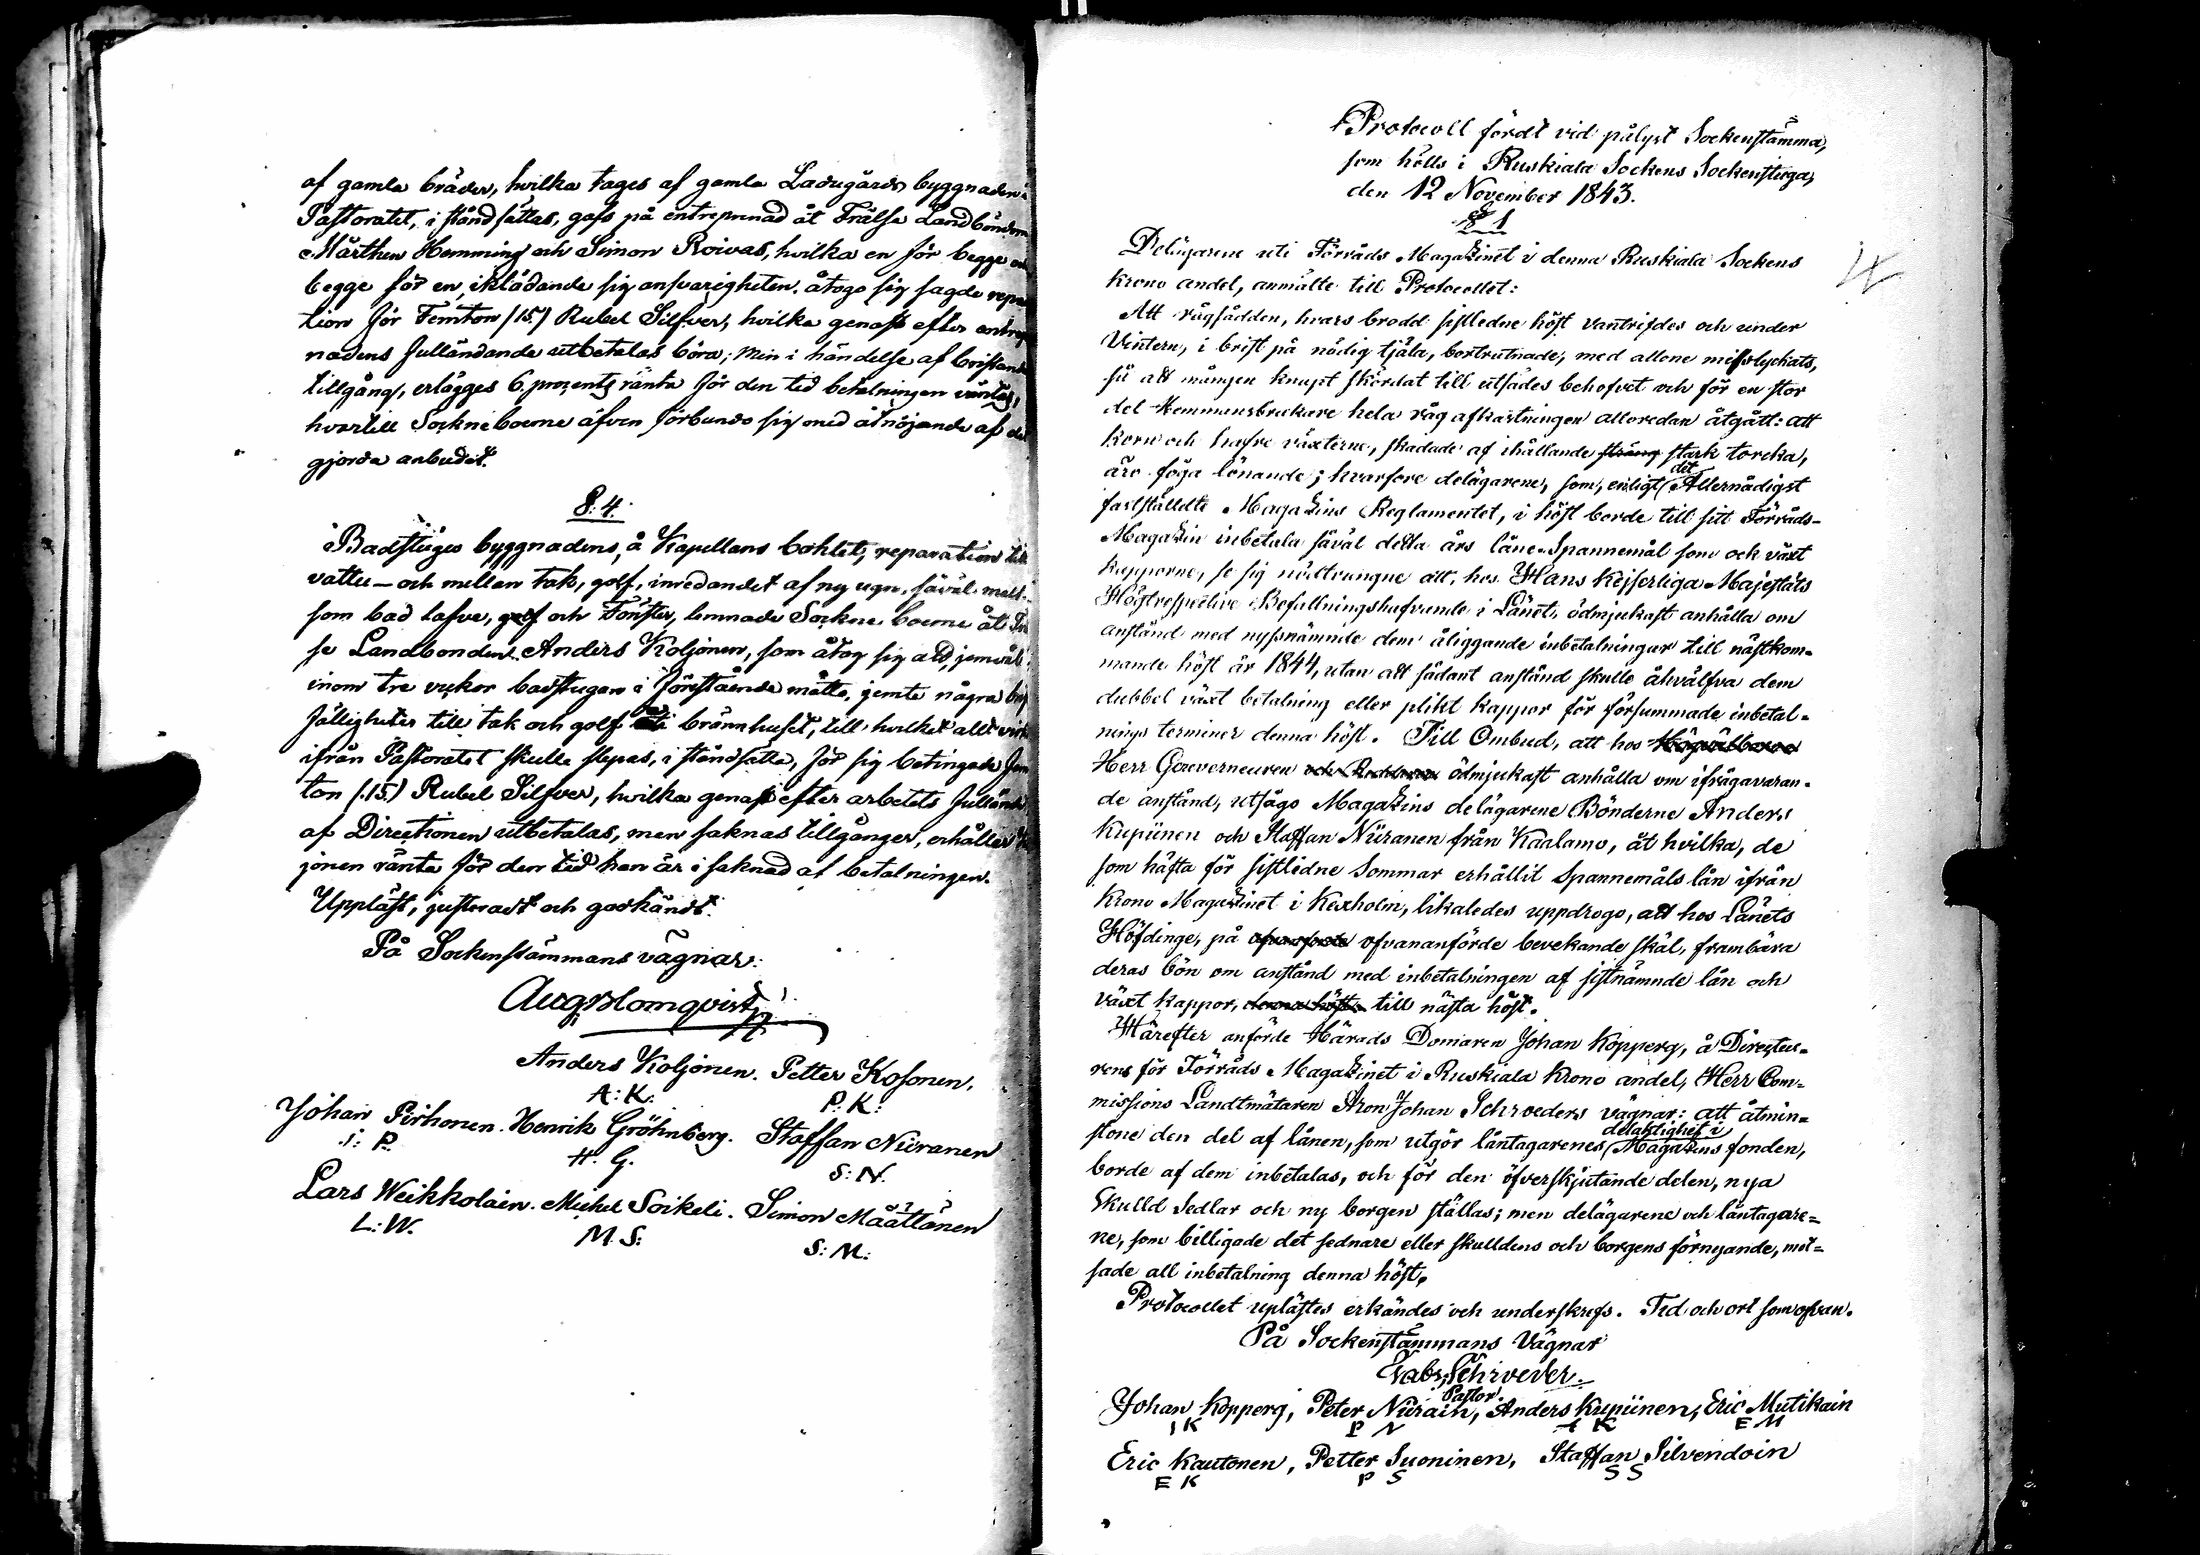 af gamla bräder, hvilka tages af gamla Ladugårds byggnaden i
Pastoratet, i stånd sättas, gafs på entreprenad åt Frälse Landbönderne
Mårthen Hemming och Simon Roivas, hvilka en för begge och
begge för en, iklädande sig ansvarigheten, åtogo sig sagde repara
tion för Femton (15.) Rubel Silfver, hvilka genast efter entrepre
nadens fulländande utbetalas böra; men i händelse af bristande
tillgång, erlägges 6 prozents ränta för den tid betalningen väntas,
hvartill Sockneboerne äfven förbundo sig med åtnöjande af det
gjorda anbudet.
§. 4.
Badstuge byggnadens, å Kapellans bohlet, reparation till
vattu- och mellan tak, golf, inredandet af ny ugn, såväl malt-
som bad lafve, golf och Fönster, lemnade Sockne boerne åt
se Landbonden Anders Koljonen, som åtog sig att, jemväl
inom tre veckor badstugan i förestående måtto, jemte några
fälligheter till tak och golf uti brännhuset, till hvilket allt
ifrån Pastoratet skulle slepas, i ståndsätta, för sig betingade Fem
ton (15.) Rubel Silfver, hvilka genast efter arbetets fulländ
af Directionen utbetalas, men saknas tillgånger, erhåller
jonen ränta för den tid han är i saknad af betalningen.
Uppläst, justeradt och godkändt.
På Sockenstämmans vägnar:
Aug Blomqvist
Anders Koljonen. Petter Kosonen.
A: K: P: K:
Johan Pirhonen. Henrik Gröhnberg. Staffan Niiranen
J: P. H. G. S: N.
Lars Weikkolain. Michel Soikeli. Simon Määttänen
L: W. M. S: S: M:
Protocoll fördt vid pålyst Sockenstämma,
som hölls i Ruskiala Sockens Sockenstuga,
den 12 November 1843.
§ 1
Delägarene uti Förråds Magazinet i denna Ruskiala Sockens
krono andel, anmälte till Protocollet:
Att rågsådden, hvars brodd sistledne höst vantrifdes och under
Vintern, i brist på nödig tjäla, bortrutnade, med allone misslyckats,
så att mången knapt skördat till utsädes behofvet och för en stor
del Hemmansbrukare hela råg afkastningen alloredan åtgått: att
korn och hafre växterne, skadade af ihållande sträng stark torcka,
äro föga lönande; hvarfore delägarene, som, enligt det Allernådigst
fastställdte Magazins Reglamentet, i höst borde till sitt Förråds-
Magazin inbetala såväl detta års låne-Spannemål som och växt
kapporne, se sig nödtvungne att, hos Hans Kejserliga Majestäts
Högtrespective Befallningshafvande i Länet, ödmjukast anhålla om
anstånd med nyssnämnde dem åliggande inbetalningar till nästkom-
mande höst år 1844, utan att sådant anstånd skulle åhvälfva dem
dubbel växt betalning eller plikt kappor för försummade inbetal-
nings terminer denna höst. Till Ombud, att hos Högvälborne
Herr Gouverneuren och Riddaren ödmjukast anhålla om ifrågavaran-
de anstånd, utsågo Magazins delägarene Bönderne Anders
Kupiinen och Staffan Niiranen från Kaalamo, åt hvilka, de
som häfta för sistlidne Sommar erhållit Spannemåls lån ifrån
Krono Magazinet i Kexholm, likaledes uppdrogo, att hos Länets
Höfdinge, på ofvanförde ofvananförde bevekande skäl, frambära
deras bön om anstånd med inbetalningen af sistnämnde lån och
växt kappor, denna höst till nästa höst.
Härefter anförde Härads Domaren Johan Kopperg, å Directeu-
rens för Förråds Magazinet i Ruskiala Krono andel, Herr Com-
missions Landtmätaren Aron Johan Schroeders vägnar: att åtmin-
stone den del af lånen, som utgör låntagarenes delaktighet i Magazins fonden,
borde af dem inbetalas, och för den öfverskjutande delen, nya
Skulld Sedlar och ny borgen ställas; men delägarene och låntagare-
ne, som billigade det sednare eller skulldens och borgens förnyande, mot-
sade all inbetalning denna höst.
Protocollet uplästes erkändes och underskrefs. Tid och ort som ofvan.
På Sockenstämmans Vägnar
Gabr. Schroeder.
Pastor.
Johan Kopperg, Peter Niirain, Anders Kupiinen, Eric Mutikain
I K P N A K E M
Eric Kautonen, Petter Suoninen, Staffan Silvendoin
E K P S S S